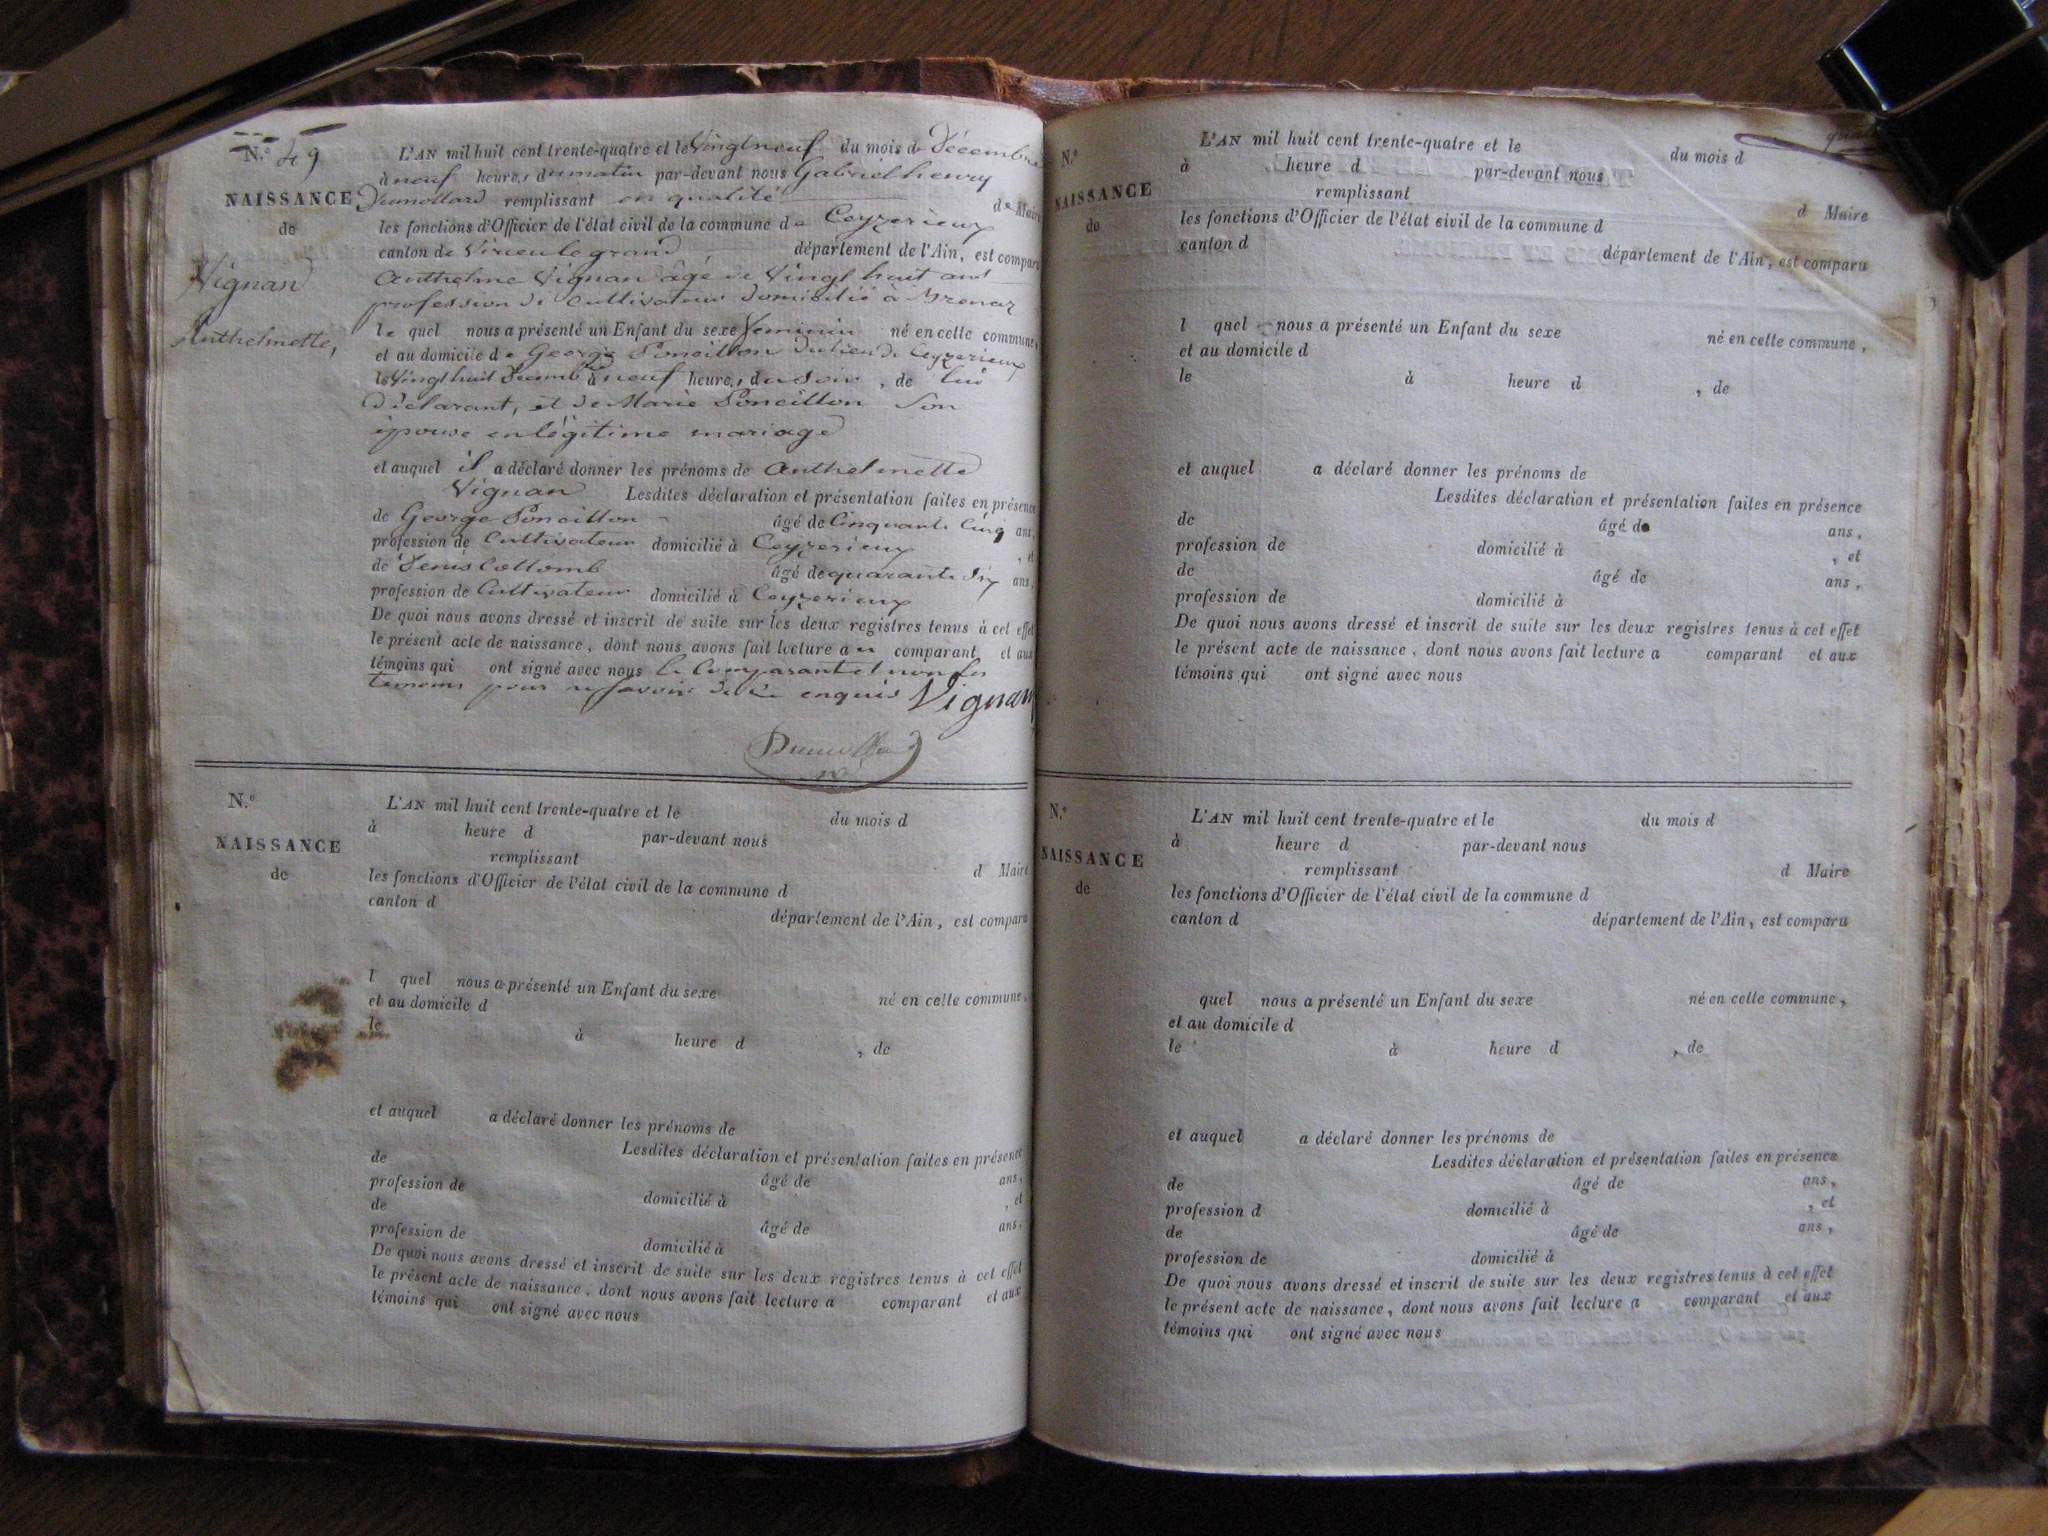 N.º 49
NAISSANCE
de
Vignan
Anthelmette,
L'AN mil huit cent trente-quatre et le Vingt neuf du mois de Décembre
à neuf heures du matin par-devant nous Gabriel henry
Dumollard remplissant en qualité de Maire
les fonctions d'Officier de l'état civil de la commune de Ceyzerieux
canton de Virieu le grand département de l'Ain, est comparu
Anthelme Vignan âgé de Vingt huit ans
profession de Cultivateur domicilié à
le quel nous a présenté un Enfant du sexe feminin né en cette commune,
et au domicile de George Poncillon du lieu de Ceyzerieux
le Vingt huit Decembre à neuf heures du Soir, de lui
déclarant, et de Marie Poncillon Son
épouse en légitime mariage
et auquel il a déclaré donner les prénoms de Anthelmette
Vignan Lesdites déclaration et présentation faites en présence
de George Poncillon âgé de Cinquante Cinq ans,
profession de Cultivateur domicilié à Ceyzerieux, et
de Denis Collomb âgé de quarante Six ans,
profession de Cultivateur domicilié à Ceyzerieux
De quoi nous avons dressé et inscrit de suite sur les deux registres tenus à cet effet
le présent acte de naissance, dont nous avons fait lecture au comparant et aux
témoins qui ont signé avec nous le Comparant et non les
temoins pour ne savoir de ce enquis Vignan
N.º
NAISSANCE
de
L'AN mil huit cent trente-quatre et le du mois d
à heure d par-devant nous
remplissant d Maire
les fonctions d'Officier de l'état civil de la commune d
canton d département de l'Ain, est comparu
l quel nous a présenté un Enfant du sexe né en cette commune,
et au domicile d
le à heure d , de
et auquel a déclaré donner les prénoms de
Lesdites déclaration et présentation faites en présence
de âgé de ans,
profession de domicilié à , et
de âgé de ans,
profession de domicilié à
De quoi nous avons dressé et inscrit de suite sur les deux registres tenus à cet effet
le présent acte de naissance, dont nous avons fait lecture a comparant et aux
témoins qui ont signé avec nous
N.º
NAISSANCE
de
L'AN mil huit cent trente-quatre et le du mois d
à heure d par-devant nous
remplissant d Maire
les fonctions d'Officier de l'état civil de la commune d
canton d département de l'Ain, est comparu
l quel nous a présenté un Enfant du sexe né en cette commune,
et au domicile d
le à heure d , de
et auquel a déclaré donner les prénoms de
Lesdites déclaration et présentation faites en présence
de âgé de ans,
profession de domicilié à , et
de âgé de ans,
profession de domicilié à
De quoi nous avons dressé et inscrit de suite sur les deux registres tenus à cet effet
le présent acte de naissance, dont nous avons fait lecture a comparant et aux
témoins qui ont signé avec nous
N.º
NAISSANCE
de
L'AN mil huit cent trente-quatre et le du mois d
à heure d par-devant nous
remplissant d Maire
les fonctions d'Officier de l'état civil de la commune d
canton d département de l'Ain, est comparu
quel nous a présenté un Enfant du sexe né en cette commune,
et au domicile d
le à heure d , de
et auquel a déclaré donner les prénoms de
Lesdites déclaration et présentation faites en présence
de âgé de ans,
profession d domicilié à , et
de âgé de ans,
profession de domicilié à
De quoi nous avons dressé et inscrit de suite sur les deux registres tenus à cet effet
le présent acte de naissance, dont nous avons fait lecture a comparant et aux
témoins qui ont signé avec nous